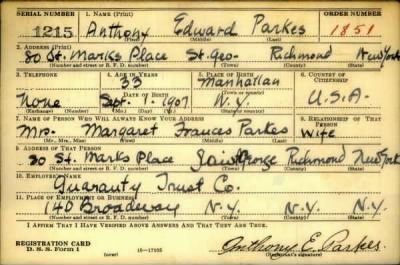 SERIAL NUMBER 1. NAME (Print) ORDER NUMBER
1215 Anthony Edward Parkes 1851
(First) (Middle) (Last)
2. ADDRESS (Print)
80 St. Marks Place St. Geo Richmond New York
(Number and street or R. F. D. number) (Town) (County) (State)
3. TELEPHONE 4. AGE IN YEARS 5. PLACE OF BIRTH 6. COUNTRY OF CITIZENSHIP
33 Manhattan
None Sept. 1907 N.Y. U.S.A.
(Exchange) (Number) (Mo.) (Day) (Yr.) (State or country)
7. NAME OF PERSON WHO WILL ALWAYS KNOW YOUR ADDRESS 8. RELATIONSHIP OF THAT PERSON
Mrs. Margaret Frances Parkes Wife
(Mr., Mrs., Miss) (First) (Middle) (Last)
9. ADDRESS OF THAT PERSON
80 St. Marks Place Saint George Richmond New York
(Number and street or R. F. D. number) (Town) (County) (State)
10. EMPLOYER'S NAME
Guaranty Trust Co.
11. PLACE OF EMPLOYMENT OR BUSINESS
140 Broadway N.Y. N.Y. N.Y.
(Number and street or R. F. D. number) (Town) (County) (State)
I AFFIRM THAT I HAVE VERIFIED ABOVE ANSWERS AND THAT THEY ARE TRUE.
REGISTRATION CARD
D. S. S. Form 1 (over) 16-17105 Anthony E. Parkes.
(Registrant's signature)